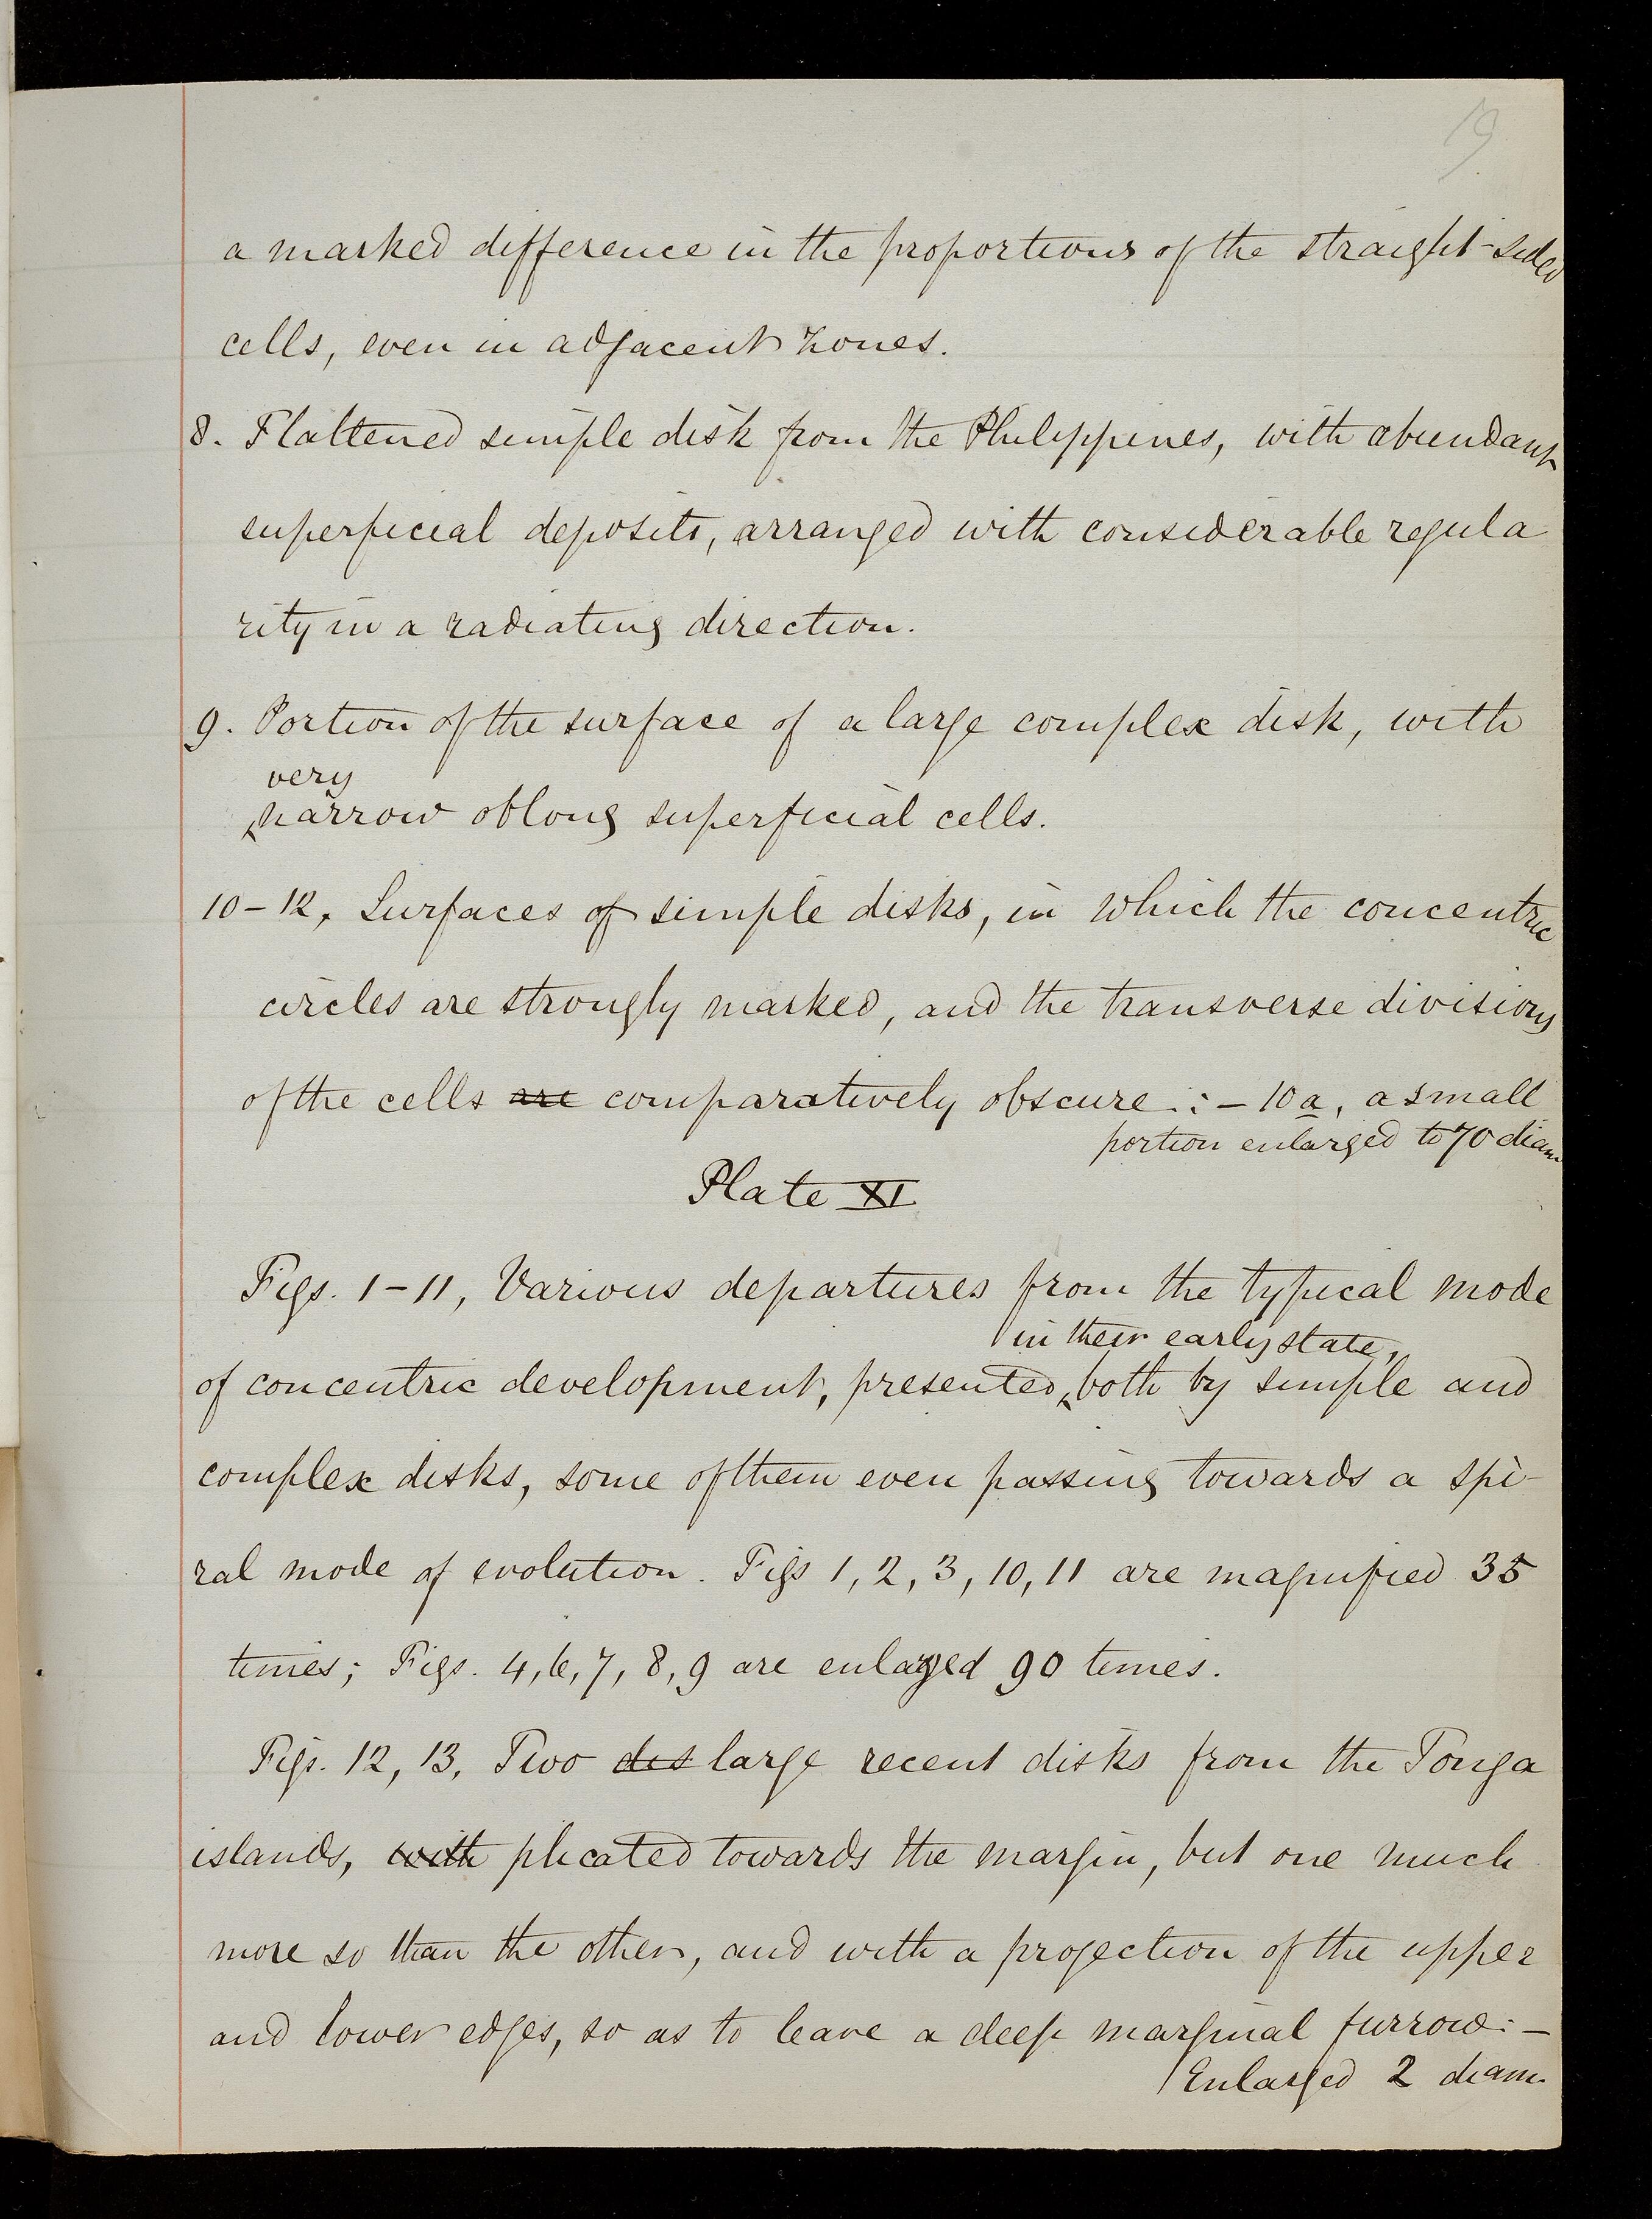 19
a marked difference in the proportions of the straight-sided
cells, even in adjacent zones.
8. Flattened simple disk from the Philippines, with abundant
superficial deposits, arranged with considerable regula
rity in a radiating direction.
9. Portion of the surface of a large complex disk, with
very
narrow oblong superficial cells.
10-12, Surfaces of simple disks, in which the concentric
circles are strongly marked, and the transverse divisions
of the cells are comparatively obscure .:- 10a, a small
portion enlarged to 70 diam
Plate XI
Figs. 1-11, Various departures from the typical mode
in their early state,
of concentric development, presented, both by simple and
complex disks, some of them even passing towards a spi-
ral mode of evolution. Figs 1, 2, 3, 10, 11 are magnified 35
times; Figs. 4, 6, 7, 8, 9 are enlarged 90 times.
Figs. 12, 13, Two dis large recent disks from the Tonga
islands, with plicated towards the margin, but one much
more so than the other, and with a projection of the upper
and lower edges, so as to leave a deep marginal furrow:-
Enlarged 2 diam.